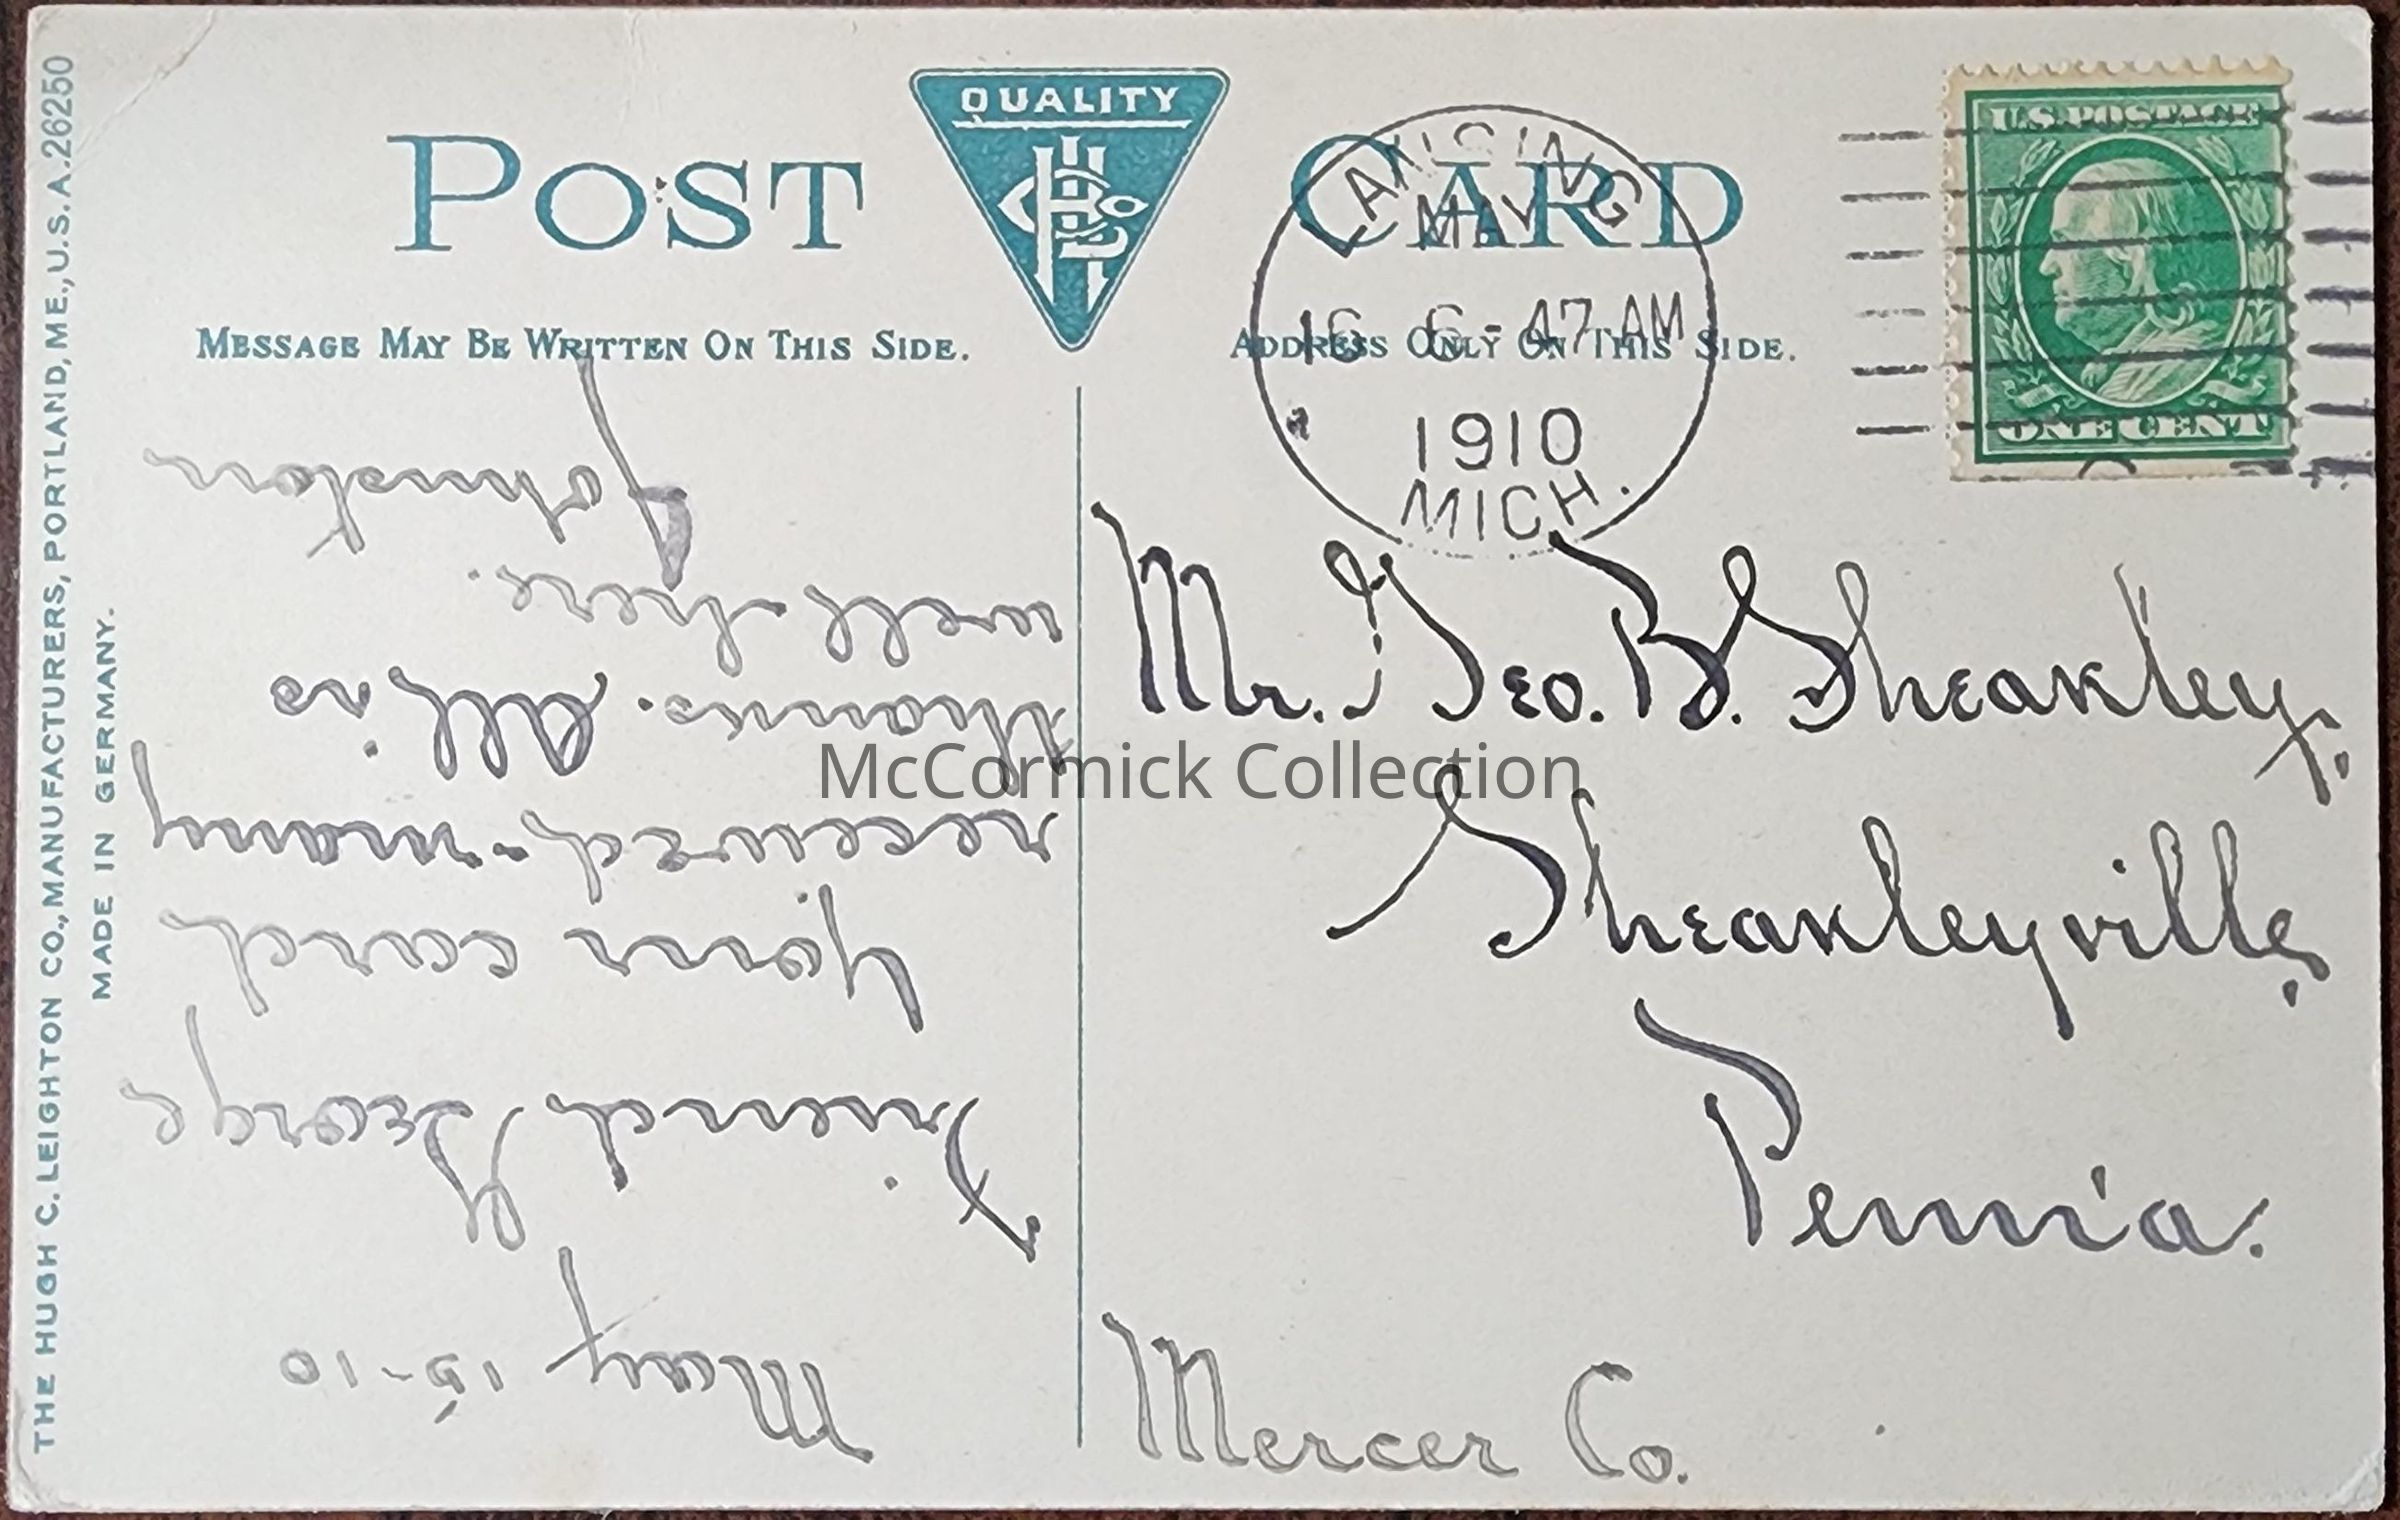 POST CARD
QUALITY
MESSAGE MAY BE WRITTEN ON THIS SIDE.
ADDRESS ONLY ON THIS SIDE.
THE HUGH C. LEIGHTON CO., MANUFACTURERS, PORTLAND, ME., U.S.A. 26250
MADE IN GERMANY.
LANSING
MAY
16 6-47 AM
1910
MICH.
U.S. POSTAGE
ONE CENT
May 15-10
Friend George
Your card
received - many
thanks. All is
well here.
Johnston
Mr. Geo. B. Sheakley,
Sheakleyville,
Penn'a.
Mercer Co.
McCormick Collection